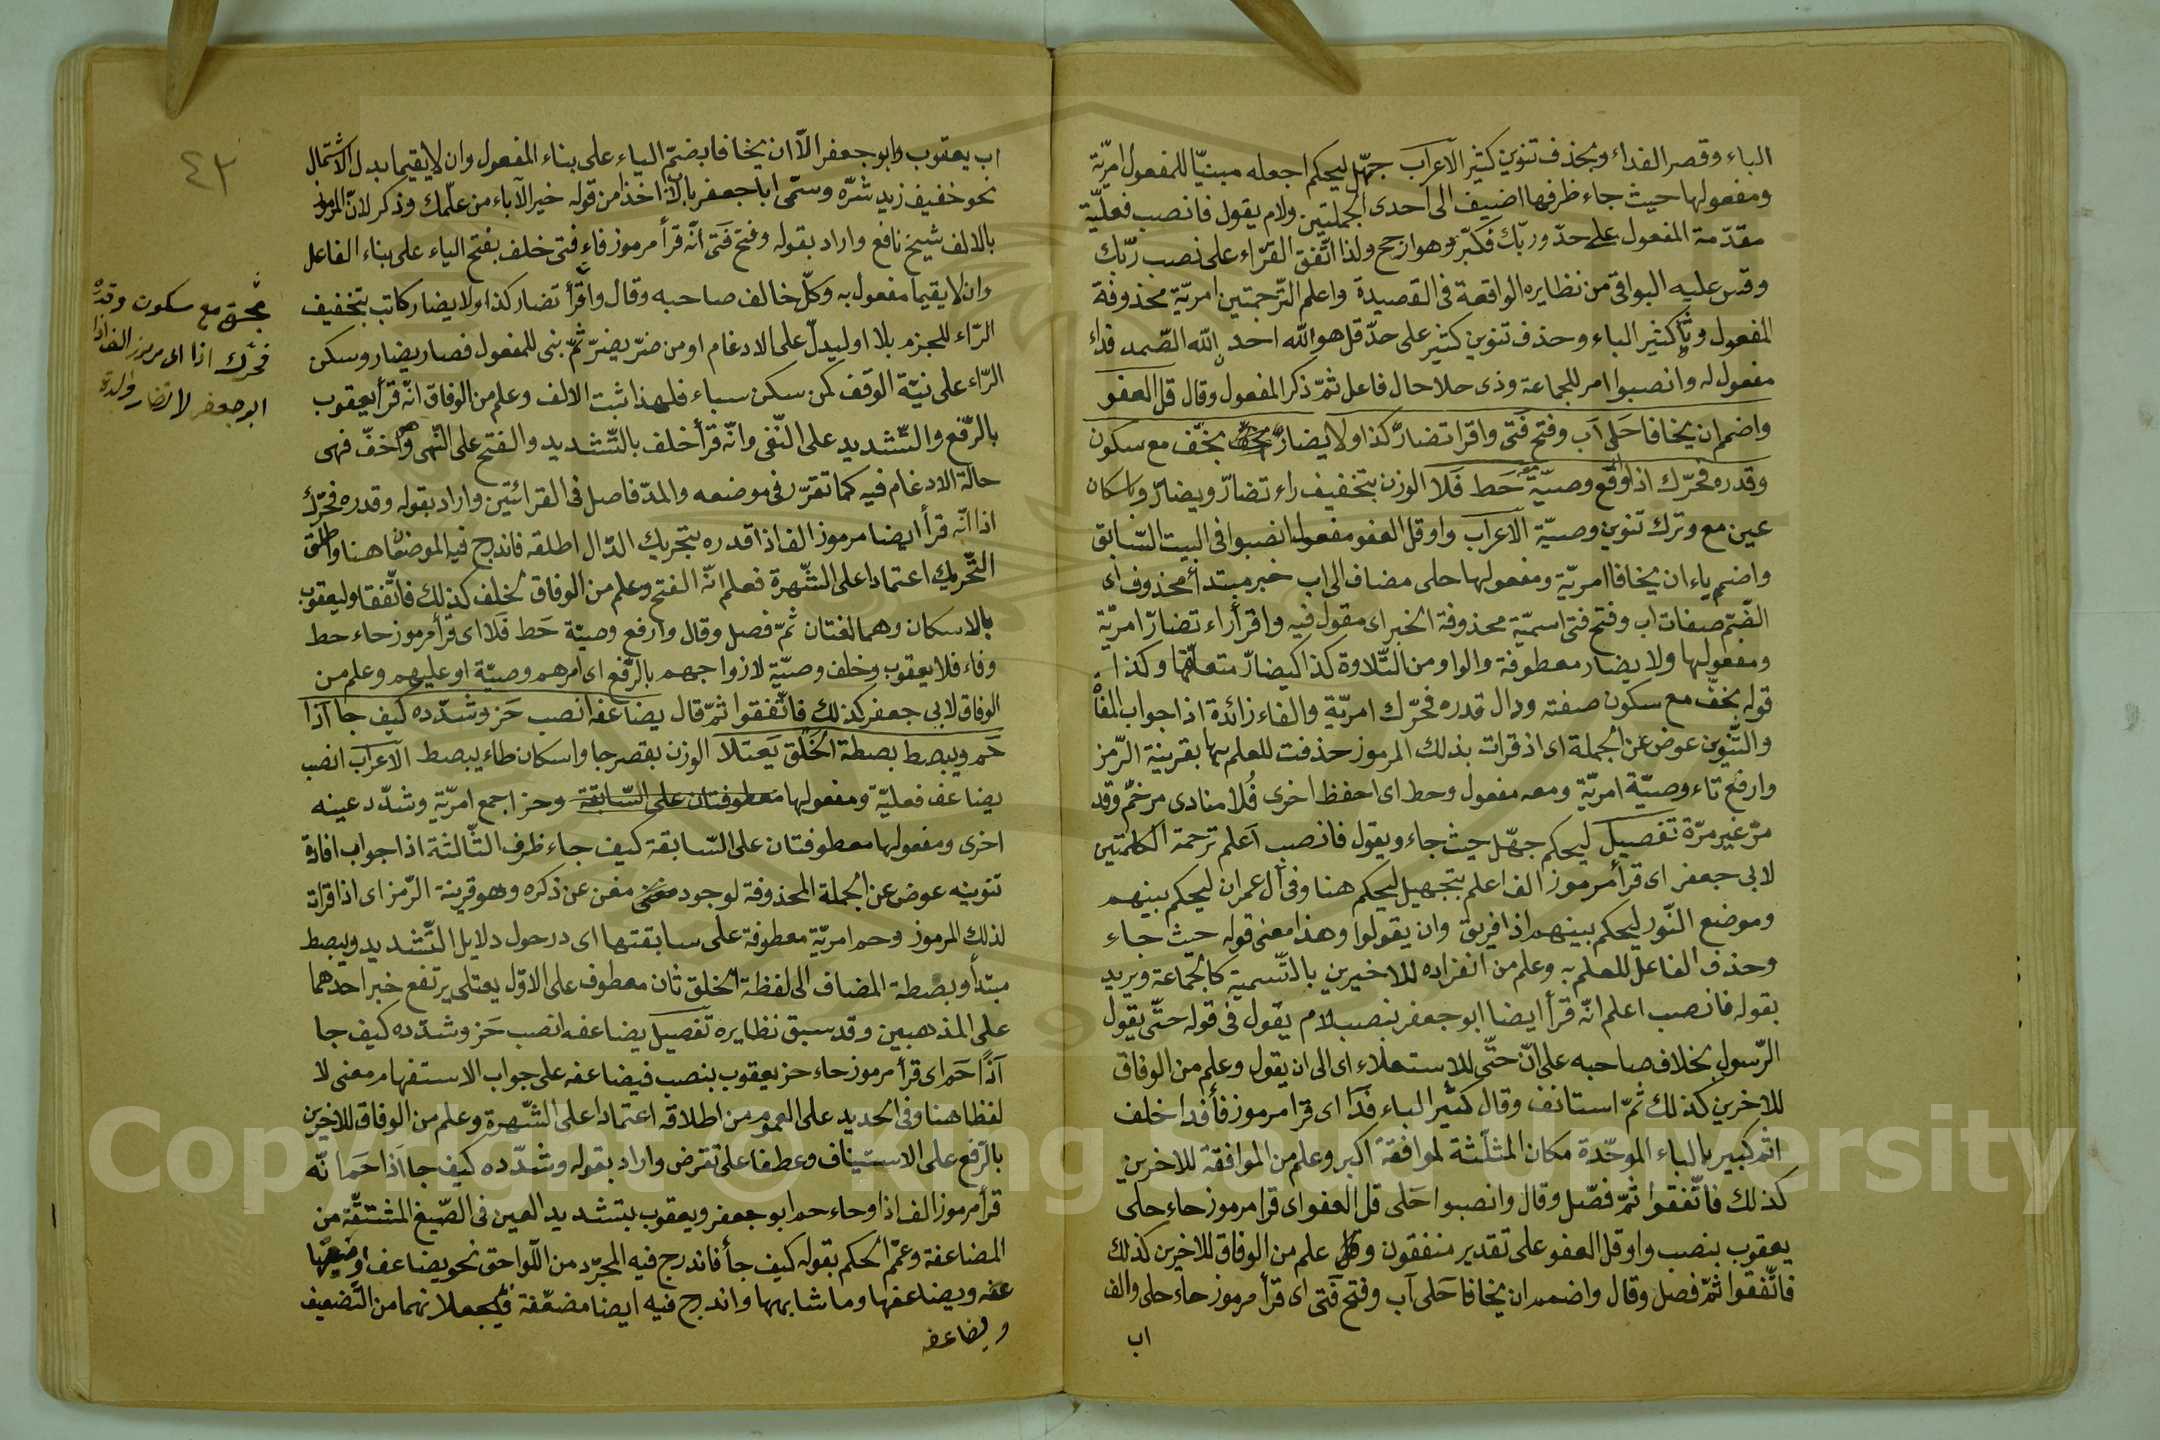 الباء وقصر الفداء وبحذف تنوين كثير الاعراب جهّل ليحكم اجعله مبنيّا للمفعول امريّة
ومفعولها حيث جاء ظرفها اضيف الى احدى الجملتين ولام يقول فانصب فعليّة
مقدّمة المفعول على حدّ وربّك فكبّر وهو ارجح ولذا اتّفق القرّاء على نصب ربّك
وقس عليه البواقى من نظايره الواقعة فى القصيدة واعلم التّرجمتين امريّة محذوفة
المفعول وبا كثير الباء وحذف تنوين كثير على حدّ قل هو الله احد الله الصّمد فداء
مفعول له وانصبوا امر للجماعة وذى حلا حال فاعل ثمّ ذكر المفعول وقال قل العفو
واضمم ان يخافا حَلى اَب وفتح فَتى واقرا تضارّ كذا ولا يضارّ بخفّ مع سكون
وقدره فحرّك اذا وارفع وصيّة حَط فَلا الوزن بتخفيف راء تضارّ ويضارّ وباسكان
عين مع وترك تنوين وصيّة الاعراب واو قل العفو مفعول انصبوا فى البيت السّابق
واضمم ياء ان يخافا امريّة ومفعولها حلى مضاف الى اب خبر مبتدأ محذوف اى
الضّمّ صفات اب وفتح فتى اسميّة محذوفة الخبر اى مقول فيه واقرأ راء تضارّ امريّة
ومفعولها ولا يضار معطوفة والواو من التّلاوة كذا كيضارّ متعلّقها وكذا
قوله بخفّ مع سكون صفته ودال قدره فحرّك امريّة والفاء زائدة اذا جواب
والتّنوين عوض عن الجملة اى اذ قرات بذلك المرموز حذفت للعلم بها بقرينة الرّمز
وارفع تاء وصيّة امريّة ومعه مفعول وحط اى احفظ اخرى فُلا منادى مرخّم وقد
مرّ غير مرّة تفصيل ليحكم جهّل حيث جاء ويقول فانصب اَعلم ترجمة الكلمتين
لابى جعفر اى قرأ مرموز الف اعلم بتجهيل ليحكم هنا وفى آل عمران ليحكم بينهم
وموضع النّور ليحكم بينهم اذا فريق وان يقولوا وهذا معنى قوله حيث جاء
وحذف الفاعل للعلم به وعلم من انفراده للاخيرين بالتّسمية كالجماعة ويريد
بقوله فانصب اعلم انّه قرأ ايضا ابو جعفر بنصب لام يقول فى قوله حتّى يقول
الرّسول بخلاف صاحبه على انّ حتّى للاستعلاء اى الى ان يقول وعلم من الوفاق
للاخرين كذلك ثمّ استانف وقال كثير الباء فَدا اى قرا مرموز فا فدا خلف
اثم كبير بالباء الموحّدة مكان المثلّثة لموافقة اكبر وعلم من الموافقة للاخرين
كذلك فاتّفقوا ثمّ فصّل وقال وانصبوا حَلى قل العفو اى قرا مرموز حاء حلى
يعقوب بنصب واو قل العفو على تقدير منفقون وعلم من الوفاق للاخرين كذلك
فاتّفقوا ثمّ فصل وقال واضمم ان يخافا حَلى اَب وفتح فَتى اى قرأ مرموز حاء حلى والف
اب
٤٣
اب يعقوب وابو جعفر الّا ان يخافا بضمّ الياء على بناء المفعول وان لا يقيما بدل الاشتمال
نحو خفيف زيد شرّه وسمّى ابا جعفر بالاب اخذا من قوله خير الآباء من علّمك وذكر لانّ المرموز
بالالف شيخ نافع واراد بقوله وفتح فَتى انّه قرأ مرموز فاء فتى خلف بفتح الياء على بناء الفاعل
وان لا يقيما مفعول به وكلّ خالف صاحبه وقال واقرأ تضار كذا ولا يضار كاتب بتخفيف
الرّاء للجزم بلا او ليدلّ على الادغام او من ضرّ يضرّ ثمّ بنى للمفعول فصار يضار وسكن
الرّاء على نيّة الوقف كمن سكن سباء فلهذا ثبت الالف وعلم من الوفاق انّه قرأ يعقوب
بالرّفع والتّشديد على النّفى وانّه قرأ خلف بالتّشديد والفتح على النّهى واخفّ فهى
حالة الادغام فيه كما تقرّر فى موضعه والمدّ فاصل فى القرائتين واراد بقوله وقدره فحرّك
اذا انّه قرأ ايضا مرموز الف اذا قدره بتحريك الدّال اطلقه فاندرج فيه الموضعان هنا واطلق
التّحريك اعتمادا على الشّهرة فعلم انّه الفتح وعلم من الوفاق لخلف كذلك فاتّفقا وليعقوب
بالاسكان وهما لغتان ثمّ فصل وقال وارفع وصيّة حَط فَلا اى قرأ مرموز حاء حط
وفاء فلا يعقوب وخلف وصيّة لازواجهم بالرّفع اى امرهم وصيّة او عليهم وعلم من
الوفاق لابى جعفر كذلك فاتّفقوا ثمّ قال يضاعفه انصب حَز وشدّده كيف جا اذا
حَم ويبصط بصطة الخَلق يَعتلا الوزن بقصر جا واسكان طاء يبصط الاعراب انصب
يضاعف فعليّة ومفعولها معطوفتان على السّابقة وحز اجمع امريّة وشدّد عينه
اخرى ومفعولها معطوفتان على السّابقة كيف جاء ظرف الثّالثة اذا جواب افادة
تنوينه عوض عن الجملة المحذوفة لوجود مغن عن ذكره وهو قرينة الرّمز اى اذا قرات
لذلك المرموز وحم امريّة معطوفة على سابقتها اى در حول دلايل التّشديد ويبصط
مبتدأ وبصطة المضاف الى لفظة الخلق ثان معطوف على الاوّل يعتلى يرتفع خبر احدهما
على المذهبين وقد سبق نظايره تفصيل يضاعفه انصب حَز وشدّده كيف جا
اذًا حَم اى قرأ مرموز حاء حز يعقوب بنصب فيضاعفه على جواب الاستفهام معنى لا
لفظا هنا وفى الحديد على العموم من اطلاقه اعتمادا على الشّهرة وعلم من الوفاق للاخرين
بالرّفع على الاستيناف وعطفا على تقرض واراد بقوله وشدّده كيف جا اذا حَم انّه
قرأ مرموز الف اذا وحاء حم ابو جعفر ويعقوب بتشديد العين فى الصّيغ المشتقّة من
المضاعفة وعمّ الحكم بقوله كيف جا فاندرج فيه المجرّد من اللّواحق نحو يضاعف
عفه ويضاعفها وما شابهها واندرج فيه ايضا مضعّفة فيجعلانهما من التّضعيف
ويضاعفه
بخفّ مع سكون وقدره
فحرّك اذا اى مرموز الف اذا
ابو جعفر لا تضار والدة
Copyright © King Saud University